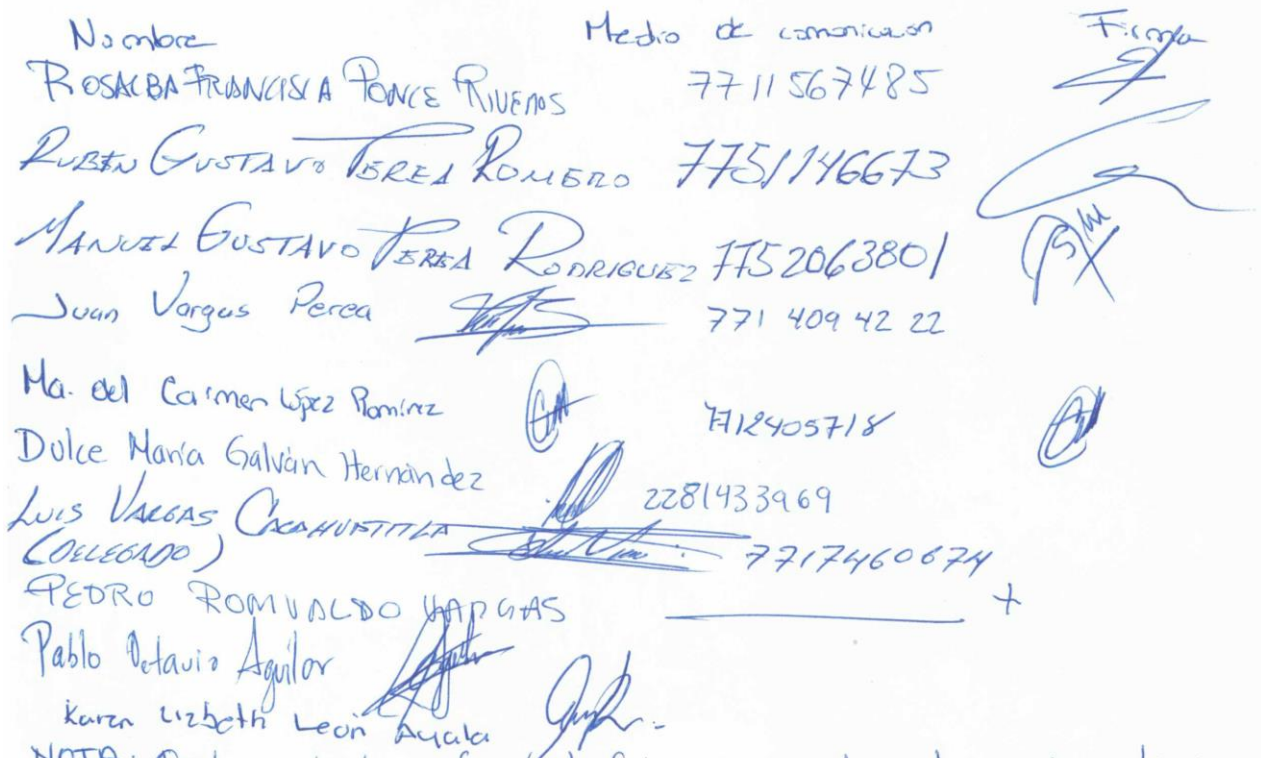 Nombre Medio de comunicación Firma
ROSALBA FRANCISCA PONCE RIVEROS 77 11 567485
RUBEN GUSTAVO PEREA ROMERO 7751146673
MANUEL GUSTAVO PEREA RODRIGUEZ 7752063801
Juan Vargas Perea 771 409 42 22
Ma. del Carmen López Ramírez 7712405718
Dulce María Galván Hernández 2281433969
LUIS VARGAS CACAHUATITLA
(DELEGADO) 7717460674
PEDRO ROMUALDO VARGAS
Pablo Octavio Aguilar
Karen Lizbeth León Ayala
NOTA: